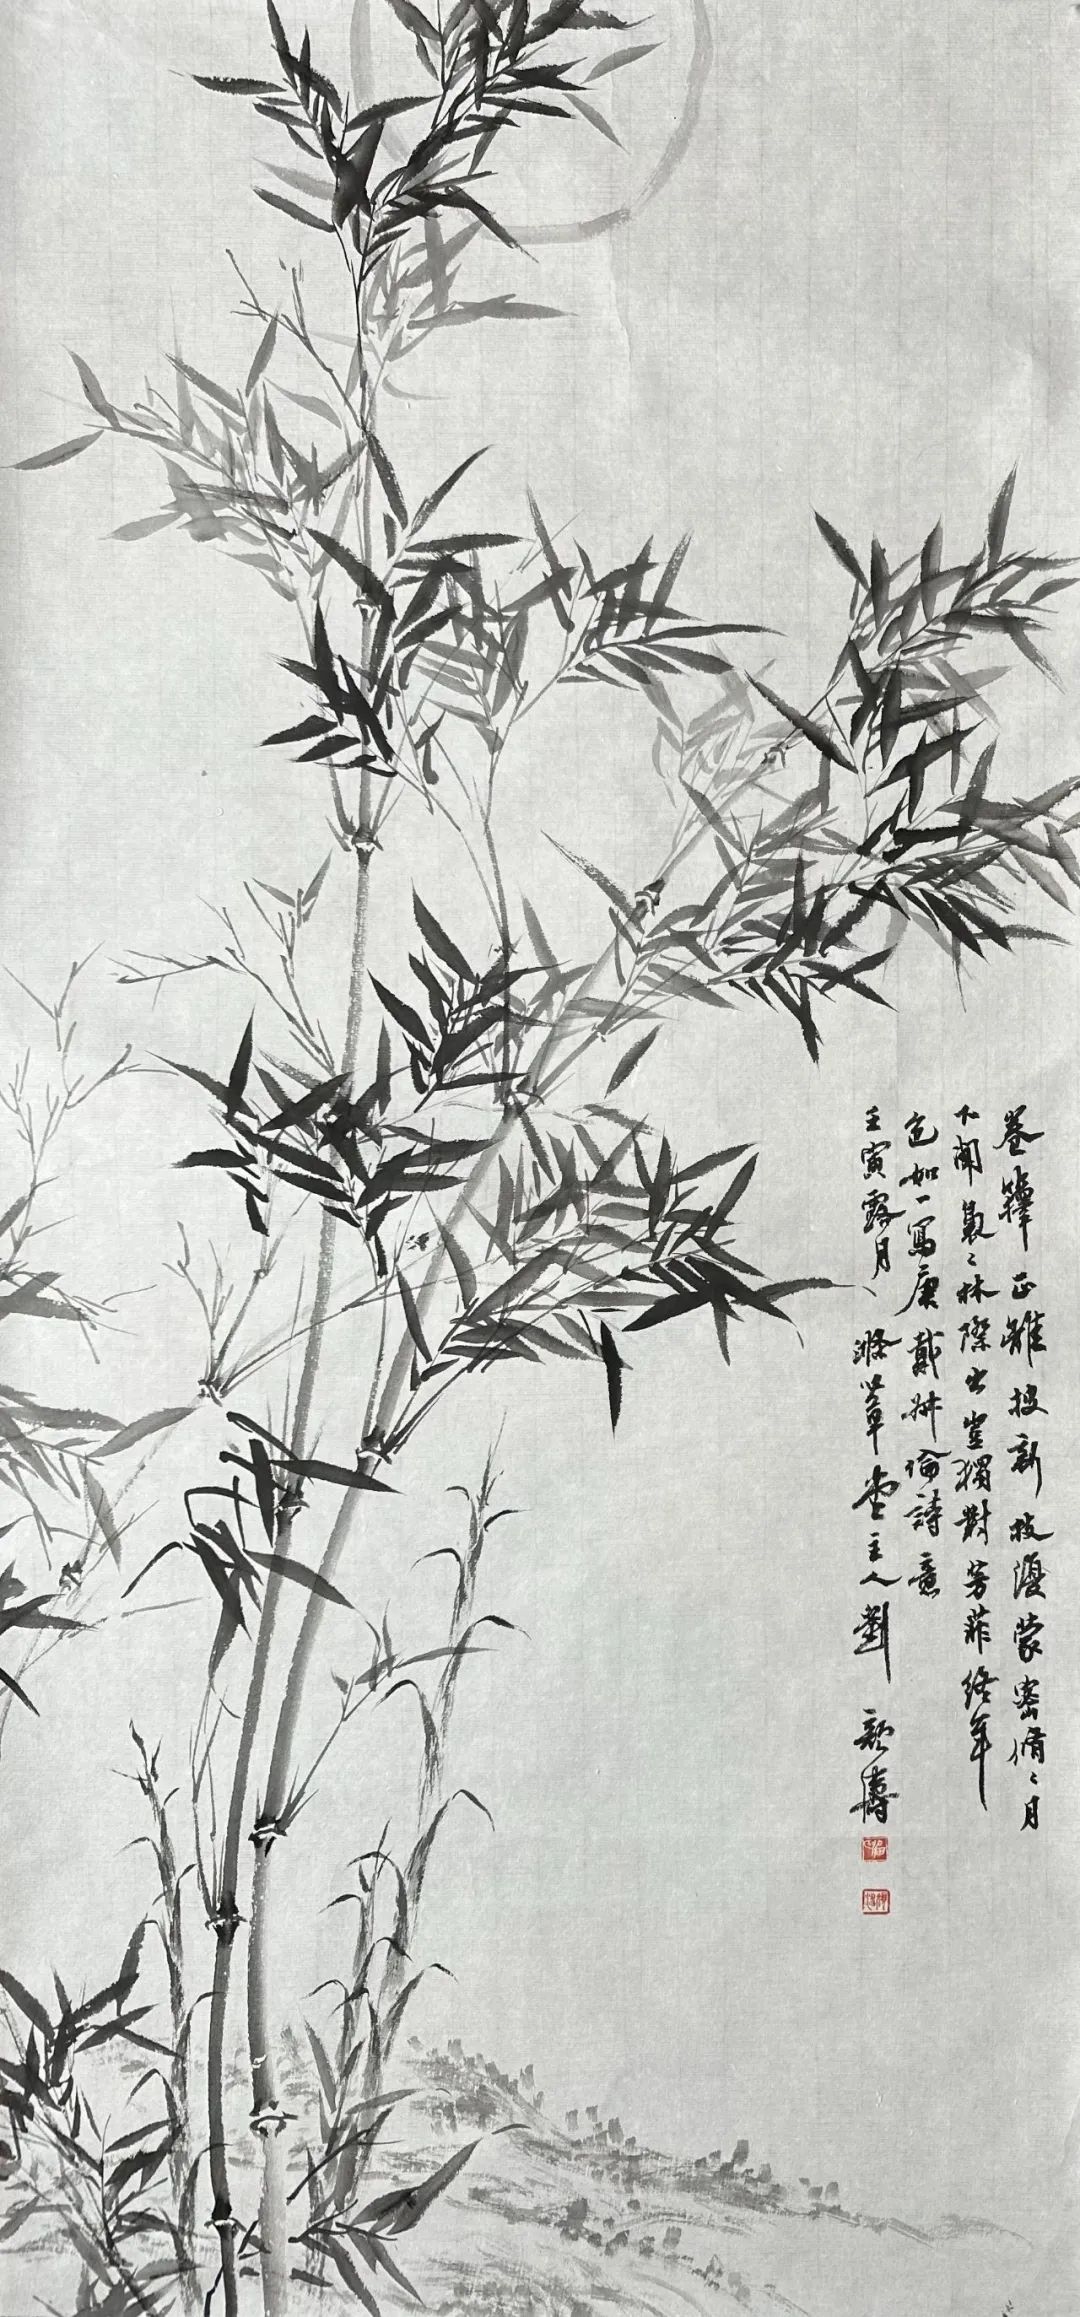 卷籜正離披新枝復蒙密脩〻月
下聞裊〻林際出豈獨對芳菲終年
色如一寫唐戴叔倫詩意
壬寅露月、滌草堂主人劉濤